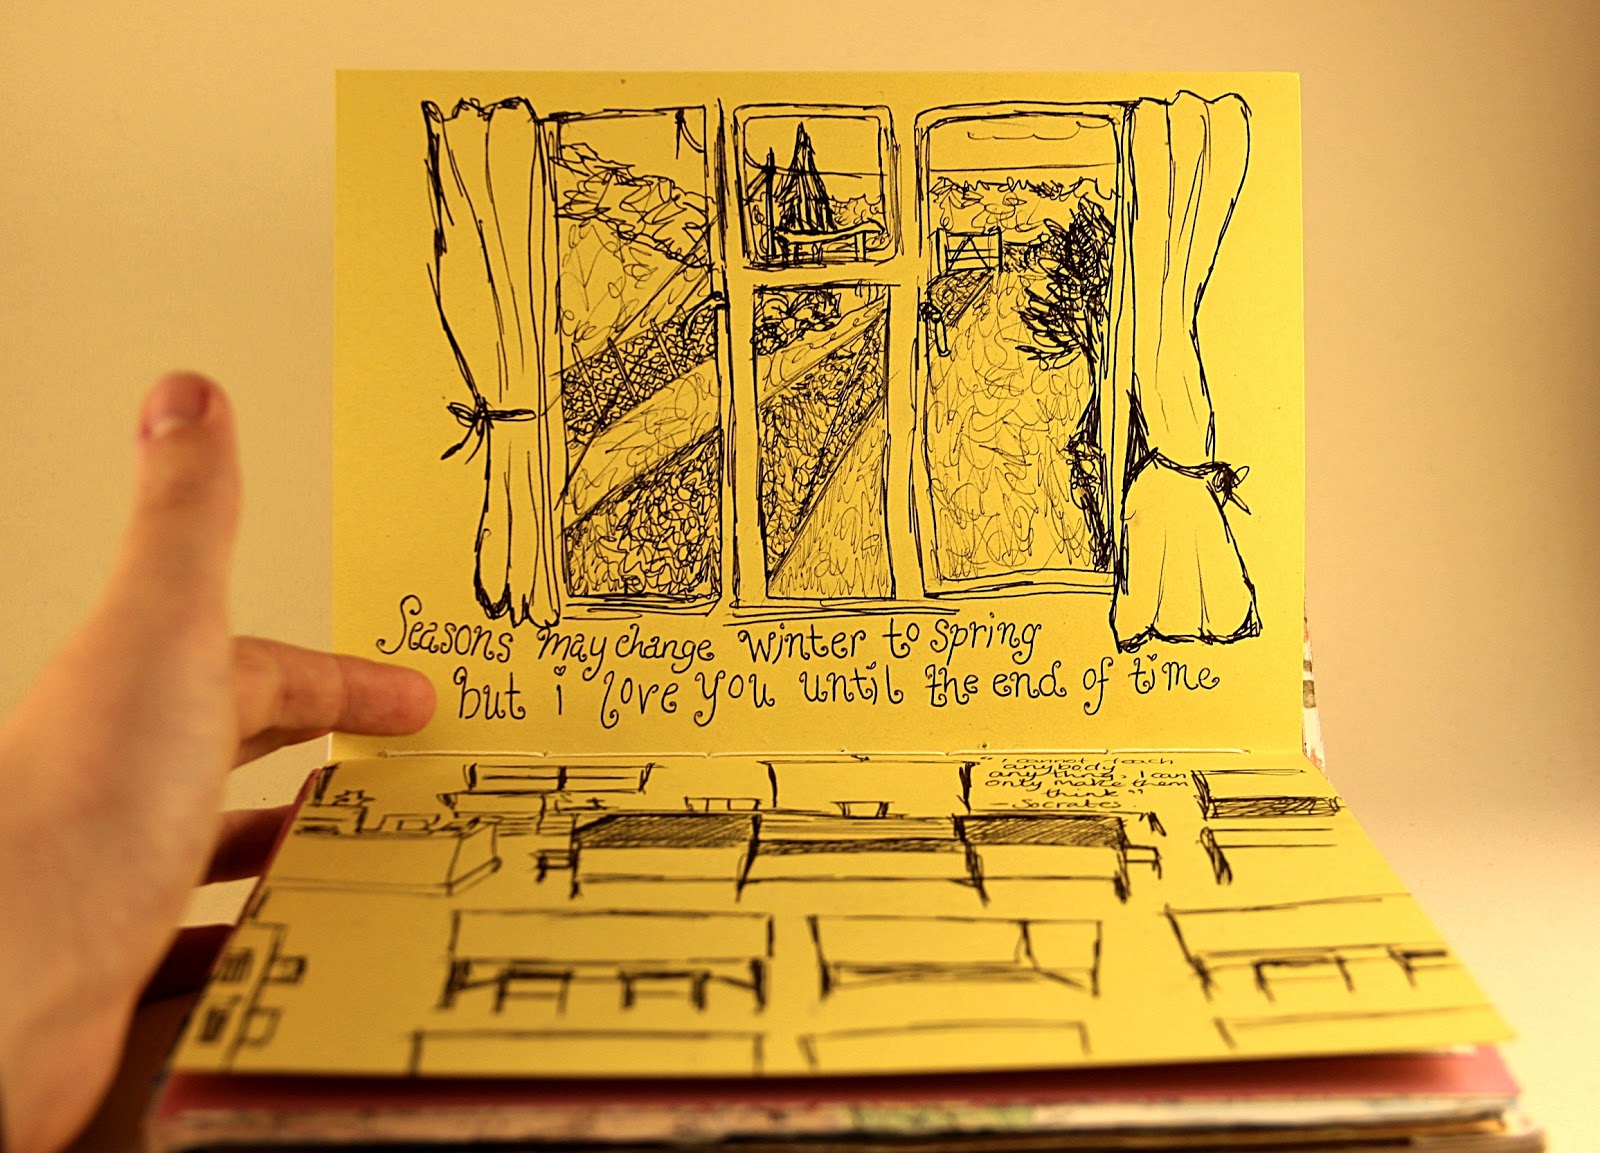 Seasons may change winter to spring
but i love you until the end of time
"I cannot teach
anybody
anything, I can
only make them
think"
- Socrates.